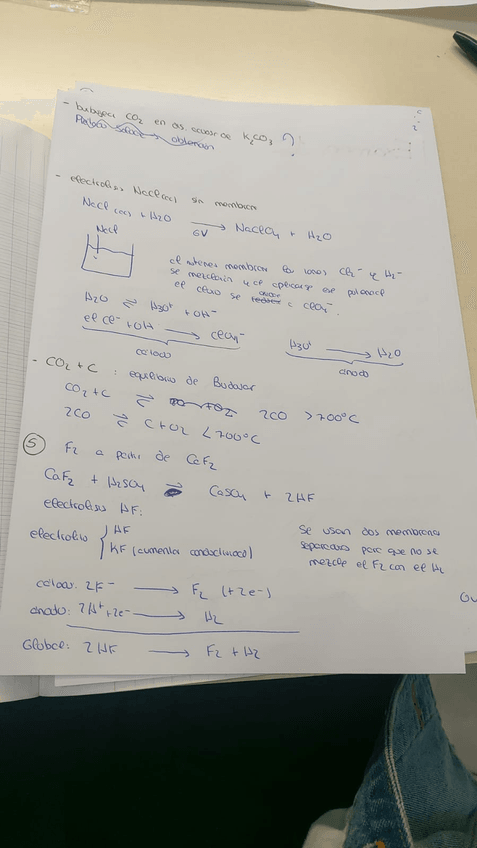 - burbujear CO2 en dis acuosa de K2CO3 ?
obtención
- electrolisis NaCl(ac) sin membrana
NaCl (ac) + H2O → NaClO4 + H2O
6V
NaCl
se mezclarían y al aplicarse ese potencial
el cloro se a ClO4-.
H2O ⇌ H3O+ + OH-
el Cl- + OH → ClO4-
cátodo
H3O+ → H2O
ánodo
- CO2 + C : equilibrio de Boudouar
CO2 + C ⇌ 2CO >700°C
2CO ⇌ C + O2 <700°C
5
F2 a partir de CaF2
CaF2 + H2SO4 ⇌ CaSO4 + 2HF
electrolisis HF:
electrolito { HF
KF (aumentar conductividad)
Se usan dos membranas
separadoras para que no se
mezcle el F2 con el H2
cátodo: 2F- → F2 (+2e-)
ánodo: 2H+ + 2e- → H2
Global: 2HF → F2 + H2